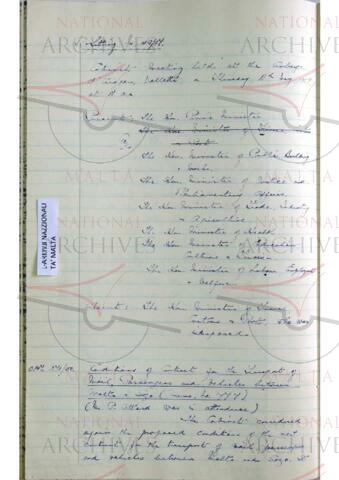 Sitting No.
Cabinet meeting held at the Auberge
Valletta on Thursday
at
Present: The Hon. Prime Minister
The Hon. Minister of
The Hon. Minister of Public Building
& Works
The Hon. Minister of Justice and
Parliamentary Affairs
The Hon. Minister of Trade, Industry
& Agriculture
The Hon. Minister of Health
The Hon. Minister of Education
Culture & Tourism
The Hon. Minister of Labour, Employment
& Welfare
Absent: The Hon. Minister of Finance
Customs & Ports, who was
indisposed.
Conditions of contract for the Transport of
Mail, Passengers and Vehicles between
Malta & Gozo (memo. no. 777)
(Mr. P. Attard was in attendance)
The Cabinet considered
again the proposed conditions of the new
contract for the transport of mail, passengers
and vehicles between Malta and Gozo. It
L-ARKIVJI NAZZJONALI
TA' MALTA
NATIONAL
ARCHIVES
MALTA